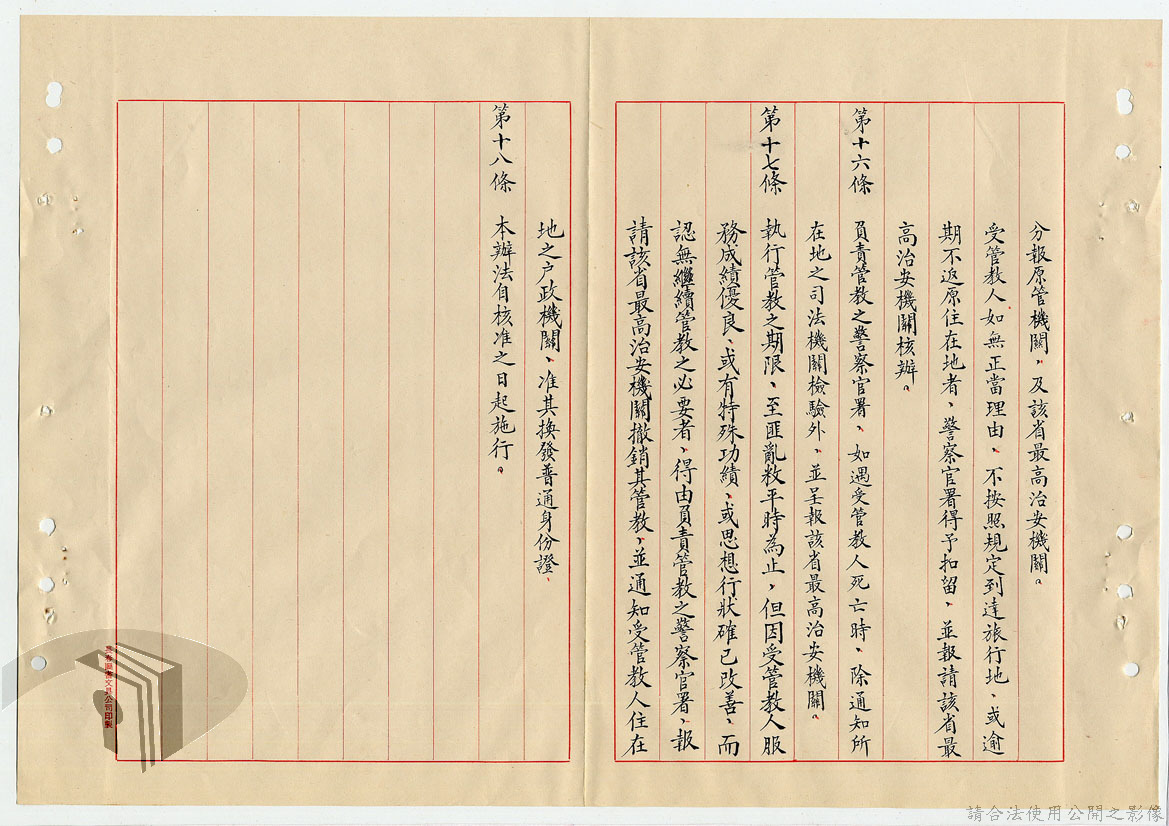 分報原管機關，及該省最高治安機關。
受管教人如無正當理由、不按照規定到達旅行地、或逾
期不返原住在地者、警察官署得予扣留、並報請該省最
高治安機關核辦。
第十六條 負責管教之警察官署、如遇受管教人死亡時、除通知所
在地之司法機關檢驗外、並呈報該省最高治安機關。
第十七條 執行管教之期限、至匪亂敉平時為止，但因受管教人服
務成績優良、或有特殊功績、或思想行狀確已改善、而
認無繼續管教之必要者、得由負責管教之警察官署、報
請該省最高治安機關撤銷其管教、並通知受管教人住在
地之户政機關、准其換發普通身份證、
第十八條 本辦法自核准之日起施行。
文具公司印製
請合法使用公開之影像